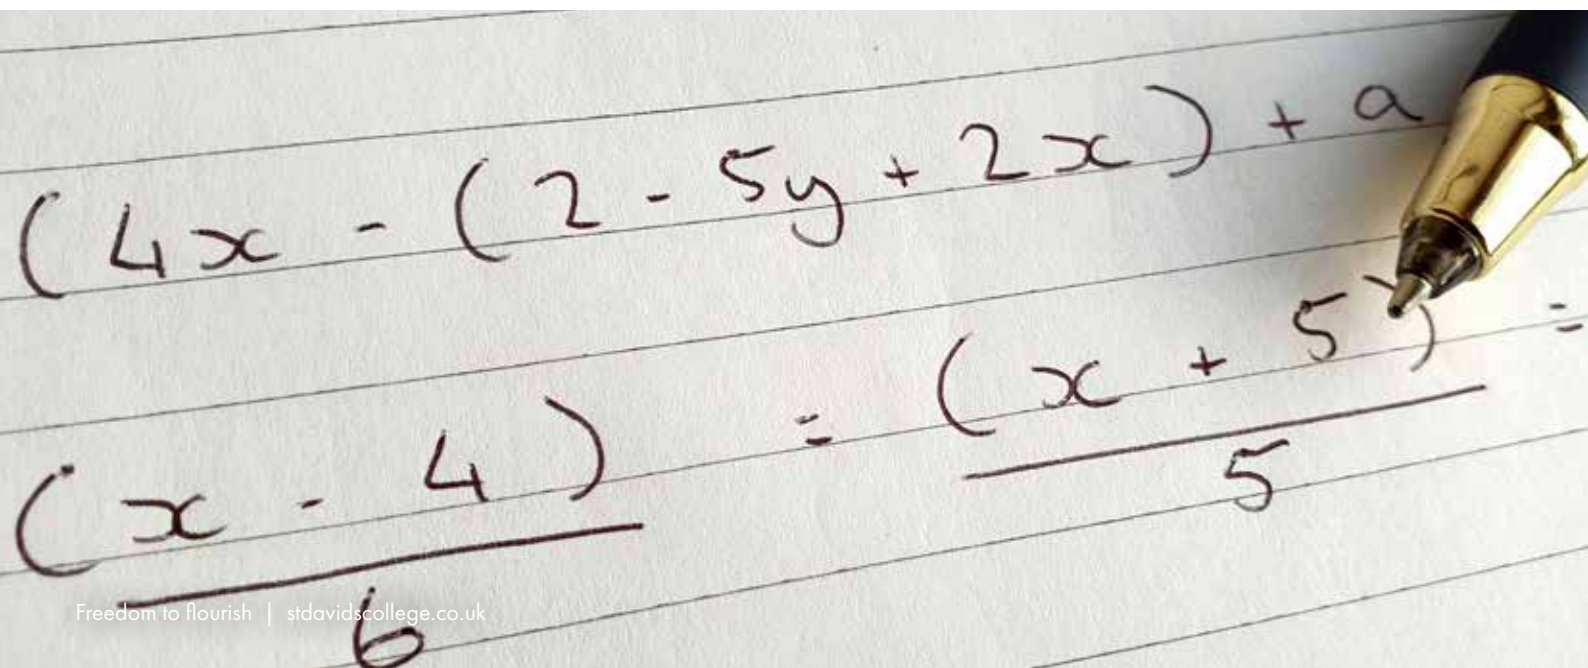 (4x - (2 - 5y + 2x) + a
(x - 4)/6 = (x + 5)/5 =
Freedom to flourish | stdavidscollege.co.uk